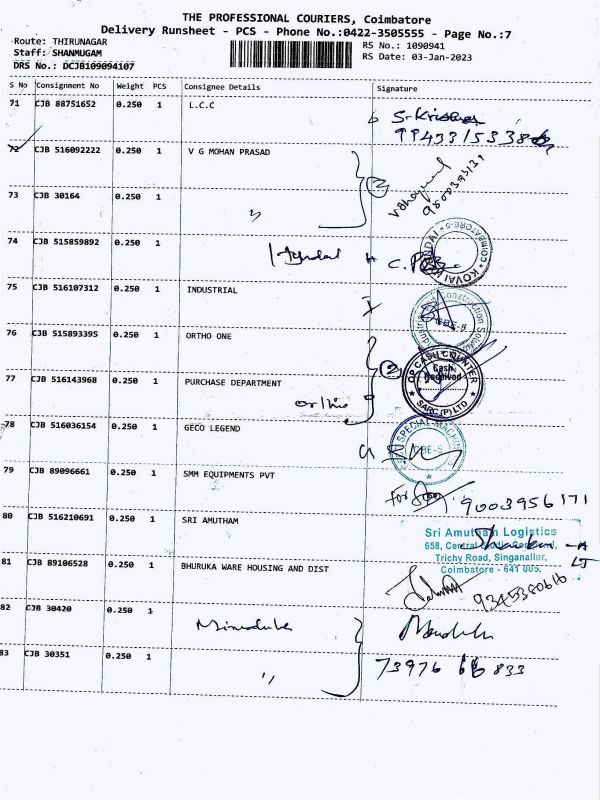 THE PROFESSIONAL COURIERS, Coimbatore
Delivery Runsheet - PCS - Phone No.:0422-3505555 - Page No.:7
Route: THIRUNAGAR
RS No.: 1090941
Staff: SHANMUGAM
RS Date: 03-Jan-2023
DRS No.: DCJB109094107
S No Consignment No Weight PCS Consignee Details Signature
71 CJB 88751652 0.250 1 L.C.C
S-Krishna
9943315338
72 CJB 516092222 0.250 1 V G MOHAN PRASAD
2
9800395131
73 CJB 30164 0.250 1 "
74 CJB 515859892 0.250 1
KOVAI
COIMBATORE-5
75 CJB 516107312 0.250 1 INDUSTRIAL
CBE-5
76 CJB 515893395 0.250 1 ORTHO ONE
2
OP CASH COUNTER
Cash
Received
SARC (P) LTD
77 CJB 516143968 0.250 1 PURCHASE DEPARTMENT
78 CJB 516036154 0.250 1 GECO LEGEND
SPECIAL MACHINE
CBE-5
79 CJB 89096661 0.250 1 SMM EQUIPMENTS PVT
for
9003956171
80 CJB 516210691 0.250 1 SRI AMUTHAM
Sri Amutham Logistics
658, Central
Trichy Road, Singanallur,
Coimbatore - 641 005.
81 CJB 89106528 0.250 1 BHURUKA WARE HOUSING AND DIST
9345380616
82 CJB 30420 0.250 1
83 CJB 30351 0.250 1 "
73976 66 833